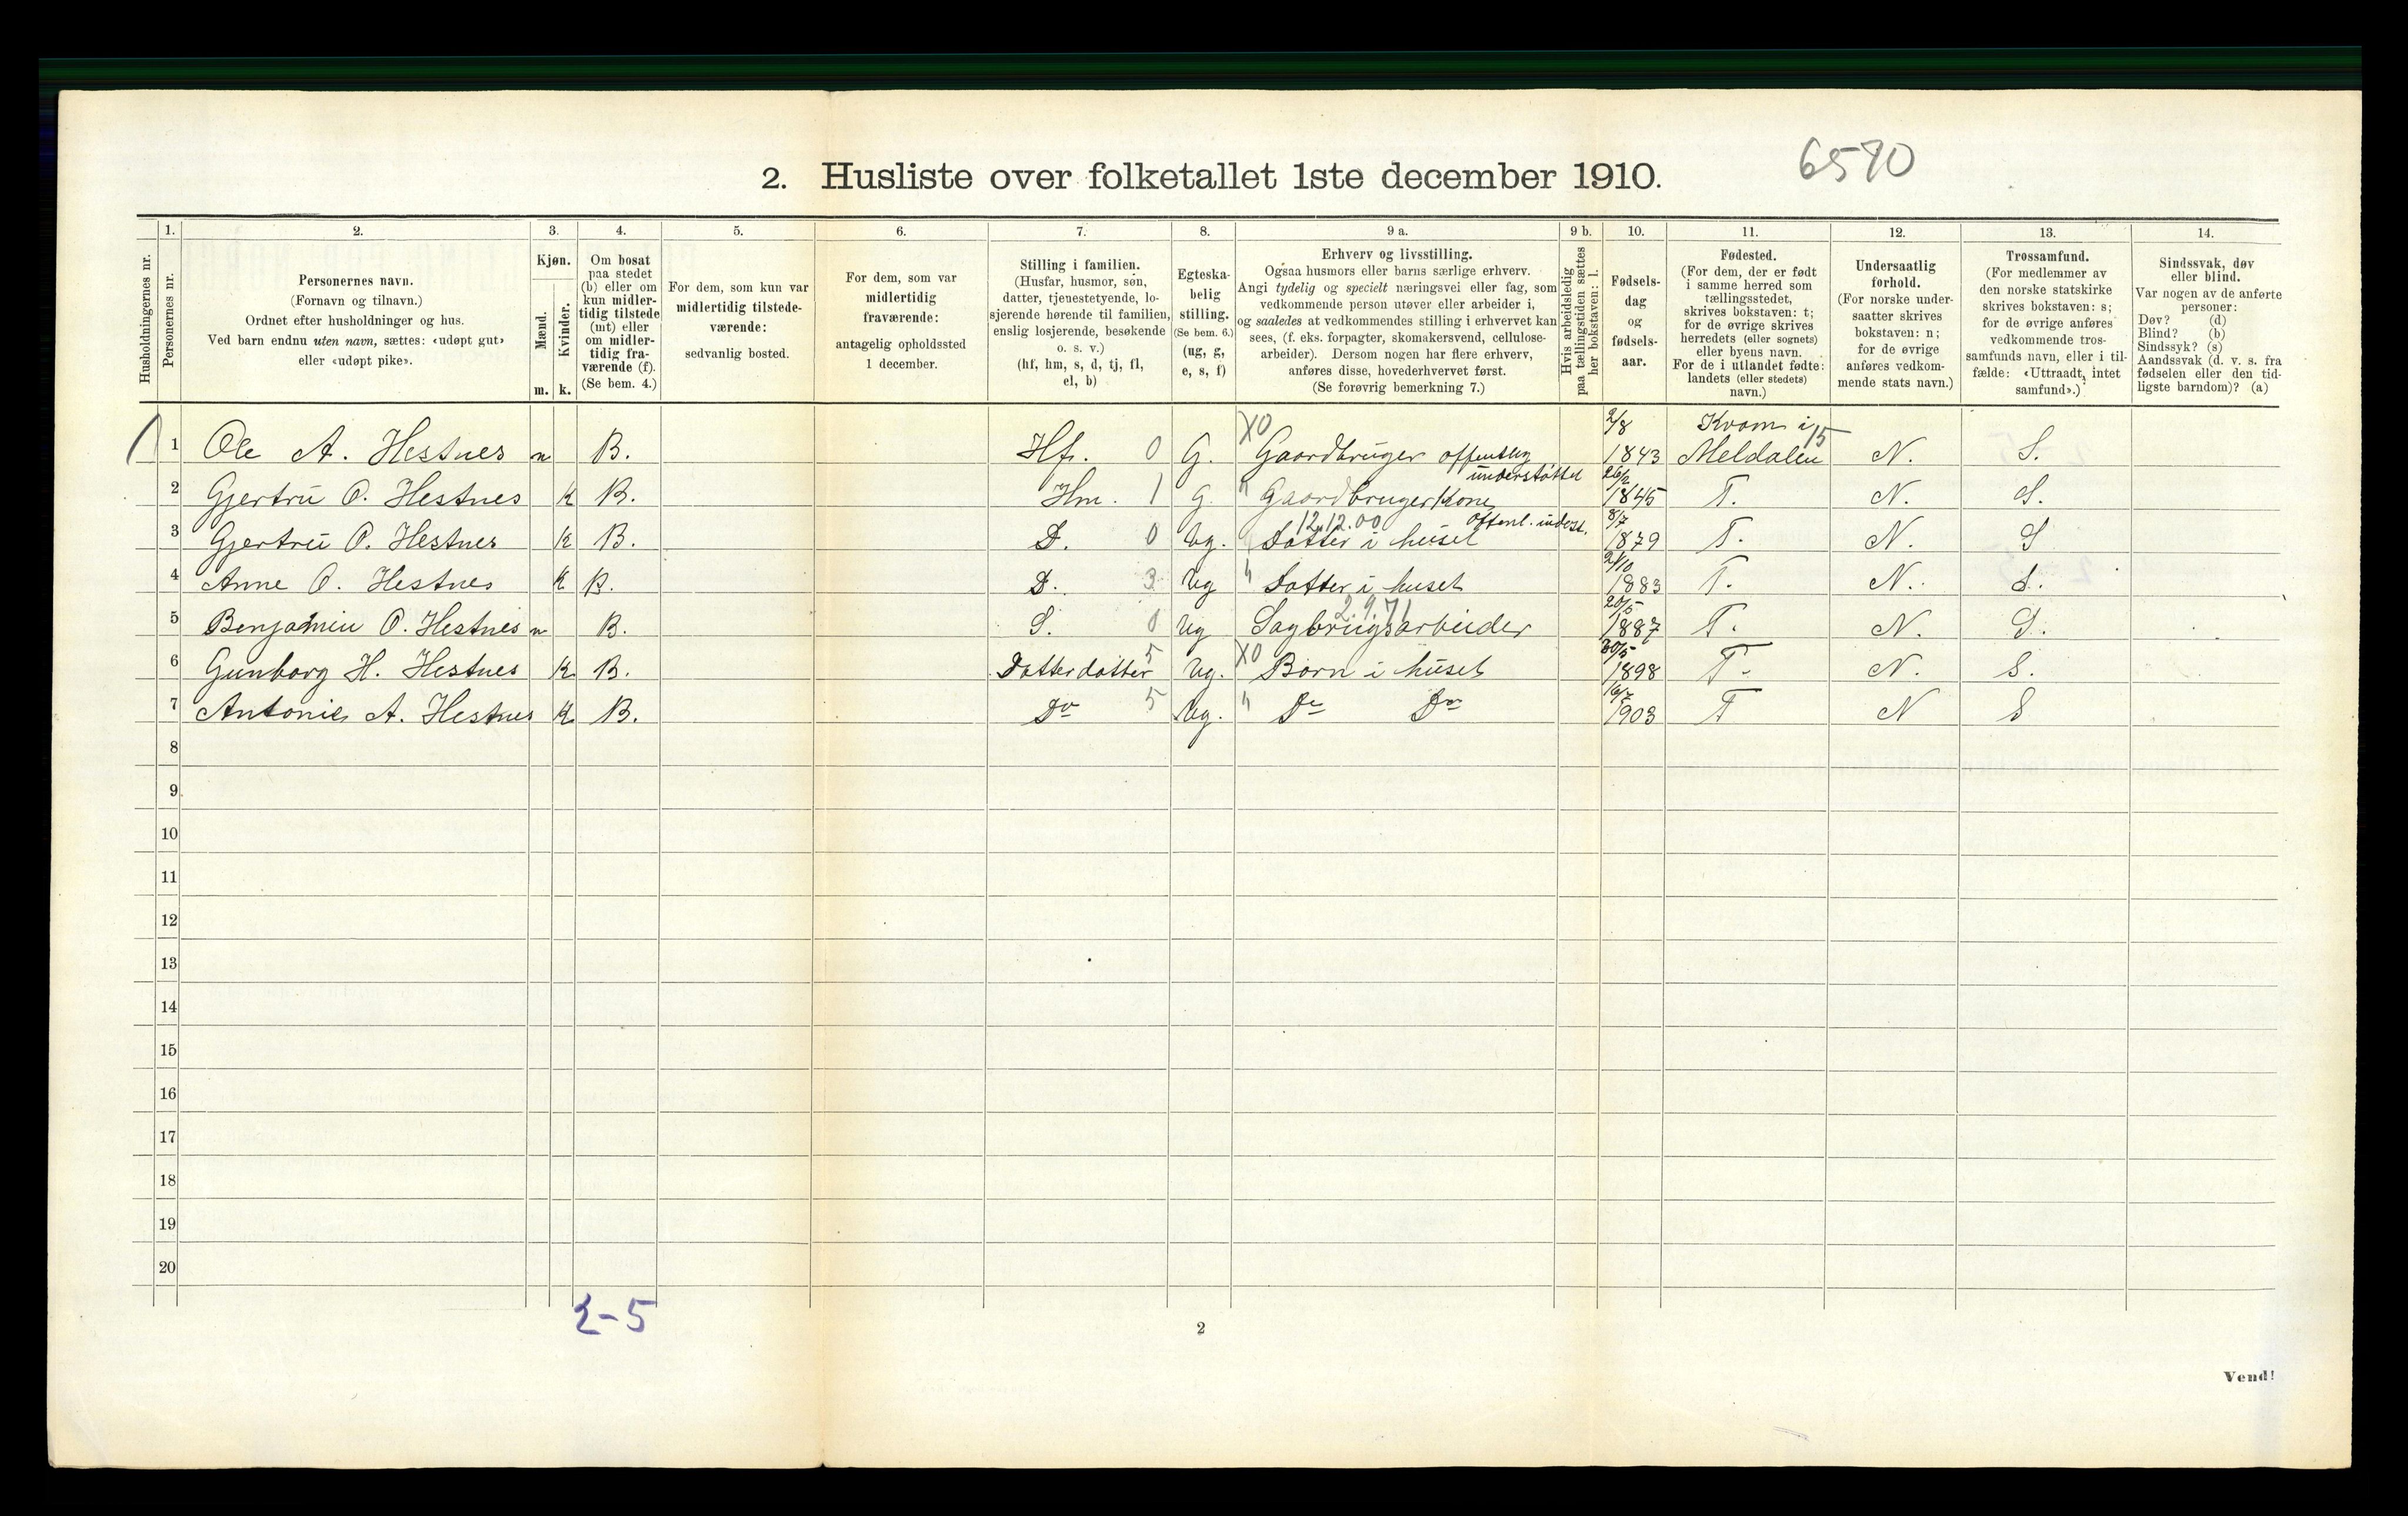 6590
2. Husliste over folketallet 1ste december 1910.
Husholdningernes nr.
1.
Personernes nr.
2.
Personernes navn.
(Fornavn og tilnavn.)
Ordnet efter husholdninger og hus.
Ved barn endnu uten navn, sættes: «udøpt gut»
eller «udøpt pike».
3.
Kjøn.
Mænd.
Kvinder.
m. k.
4.
Om bosat
paa stedet
(b) eller om
kun midler-
tidig tilstede
(mt) eller
om midler-
tidig fra-
værende (f).
(Se bem. 4.)
5.
For dem, som kun var
midlertidig tilstede-
værende:
sedvanlig bosted.
6.
For dem, som var
midlertidig
fraværende:
antagelig opholdssted
1 december.
7.
Stilling i familien.
(Husfar, husmor, søn,
datter, tjenestetyende, lo-
sjerende hørende til familien,
enslig losjerende, besøkende
o. s. v.)
(hf, hm, s, d, tj, fl,
el, b)
8.
Egteska-
belig
stilling.
(Se bem. 6.)
(ug, g,
e, s, f)
9 a.
Erhverv og livsstilling.
Ogsaa husmors eller barns særlige erhverv.
Angi tydelig og specielt næringsvei eller fag, som
vedkommende person utøver eller arbeider i,
og saaledes at vedkommendes stilling i erhvervet kan
sees, (f. eks. forpagter, skomakersvend, cellulose-
arbeider). Dersom nogen har flere erhverv,
anføres disse, hovederhvervet først.
(Se forøvrig bemerkning 7.)
9 b.
Hvis arbeidsledig
paa tællingstiden sættes
her bokstaven: l.
10.
Fødsels-
dag
og
fødsels-
aar.
11.
Fødested.
(For dem, der er født
i samme herred som
tællingsstedet,
skrives bokstaven: t;
for de øvrige skrives
herredets (eller sognets)
eller byens navn.
For de i utlandet fødte:
landets (eller stedets)
navn.)
12.
Undersaatlig
forhold.
(For norske under-
saatter skrives
bokstaven: n;
for de øvrige
anføres vedkom-
mende stats navn.)
13.
Trossamfund.
(For medlemmer av
den norske statskirke
skrives bokstaven: s;
for de øvrige anføres
vedkommende tros-
samfunds navn, eller i til-
fælde: «Uttraadt, intet
samfund».)
14.
Sindssvak, døv
eller blind.
Var nogen av de anførte
personer:
Døv? (d)
Blind? (b)
Sindssyk? (s)
Aandssvak (d. v. s. fra
fødselen eller den tid-
ligste barndom)? (a)
XO 2/8 Kvam i 15
1 Ole A. Hestnes m B. Hf. 0 G. Gaardbruger offentlig understøttet 1843 Meldalen N. S.
2 Gjertru O. Hestnes K B. Hm. 1 G. " Gaardbruger Kone 26/2 1845 T. N. S.
12.12.00 Offenl. underst.
3 Gjertru O. Hestnes K B. D. 0 Ug. Datter i huset 8/7 1879 T. N. S
4 Anne O. Hestnes K B. D. 3 Ug " Datter i huset 21/10 1883 T. N. S.
2.9.71
5 Benjamin O. Hestnes m B. S. 0 Ug Sagbrugsarbeider 20/5 1887 T. N. S.
6 Gunborg H. Hestnes K. B. Datterdatter 5 Ug. XO Barn i huset 30/5 1898 T. N. S.
7 Antonie A. Hestnes K. B. Do 5 Ug. " Do Do 16/7 1903 T N S
8
9
10
11
12
13
14
15
16
17
18
19
20
2-5
2
Vend!